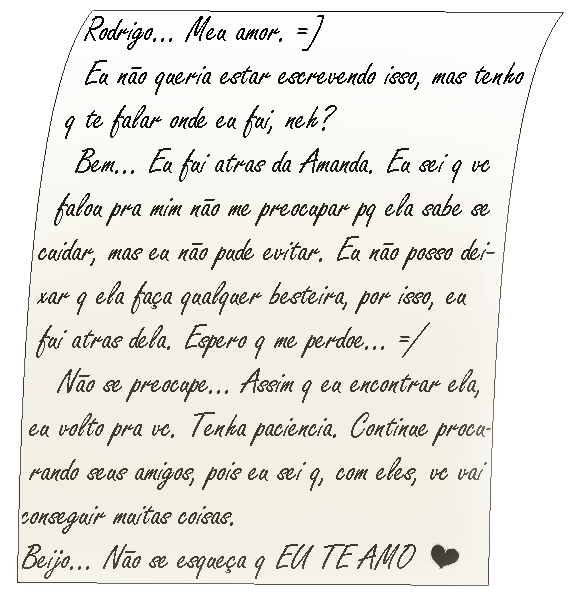 Rodrigo... Meu amor. =]
Eu não queria estar escrevendo isso, mas tenho
q te falar onde eu fui, neh?
Bem... Eu fui atras da Amanda. Eu sei q vc
falou pra mim não me preocupar pq ela sabe se
cuidar, mas eu não pude evitar. Eu não posso dei-
xar q ela faça qualquer besteira, por isso, eu
fui atras dela. Espero q me perdoe... =/
Não se preocupe... Assim q eu encontrar ela,
eu volto pra vc. Tenha paciencia. Continue procu-
rando seus amigos, pois eu sei q, com eles, vc vai
conseguir muitas coisas.
Beijo... Não se esqueça q EU TE AMO ❤